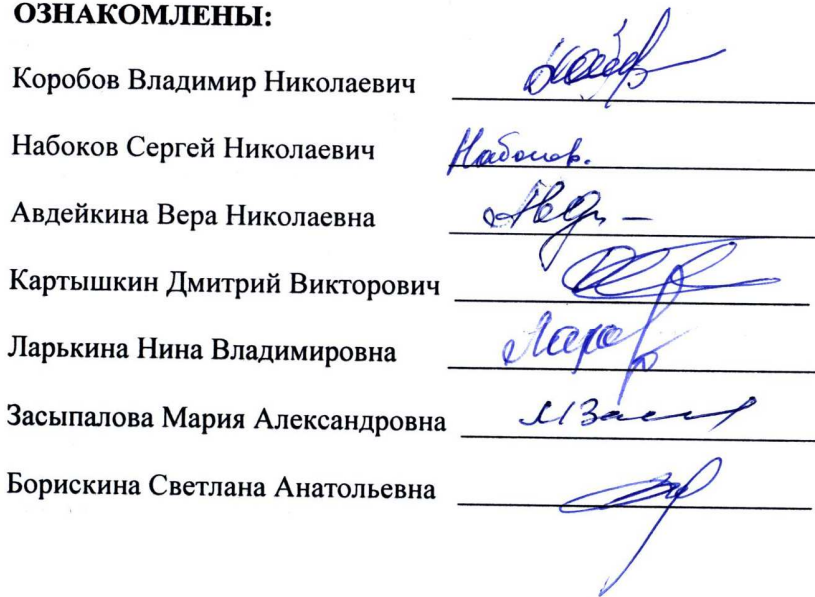 ОЗНАКОМЛЕНЫ:
Коробов Владимир Николаевич
Набоков Сергей Николаевич Набоков.
Авдейкина Вера Николаевна
Картышкин Дмитрий Викторович
Ларькина Нина Владимировна
Засыпалова Мария Александровна
Борискина Светлана Анатольевна